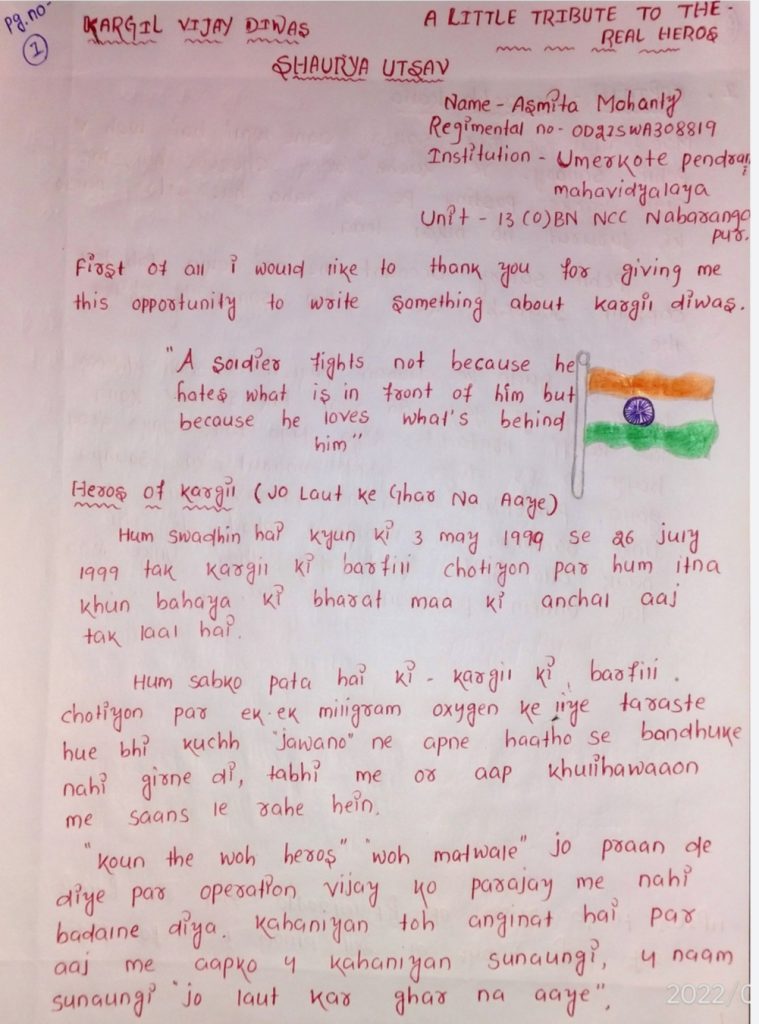 Pg.no-
1
KARGIL VIJAY DIWAS
A LITTLE TRIBUTE TO THE-
REAL HEROS
SHAURYA UTSAV
Name - Asmita Mohanty
Regimental no - OD22SWA308819
Institution - Umerkote pendrani
mahavidyalaya
Unit - 13 (O) BN NCC Nabaranga
pur.
First of all i would like to thank you for giving me
this opportunity to write something about kargil diwas.
"A soldier fights not because he
hates what is in front of him but
because he loves what's behind
him"
Heros of kargil (Jo Laut ke Ghar Na Aaye)
Hum swadhin hai kyun ki 3 may 1999 se 26 july
1999 tak kargil ki barfili chotiyon par hum itna
khun bahaya ki bharat maa ki anchal aaj
tak laal hai.
Hum sabko pata hai ki - kargil ki, barfili.
chotiyon par ek-ek miligram oxygen ke liye taraste
hue bhi kuchh "jawano" ne apne haatho se bandhuke
nahi girne di, tabhi me or aap khulihawaaon
me saans le rahe hein.
"Koun the woh heros" "woh matwale" jo praan de
diye par operation vijay ko parajay me nahi
badalne diya. kahaniyan toh anginat hai par
aaj me aapko 4 kahaniyan sunaungi, 4 naam
sunaungi "jo laut kar ghar na aaye",
2022/0